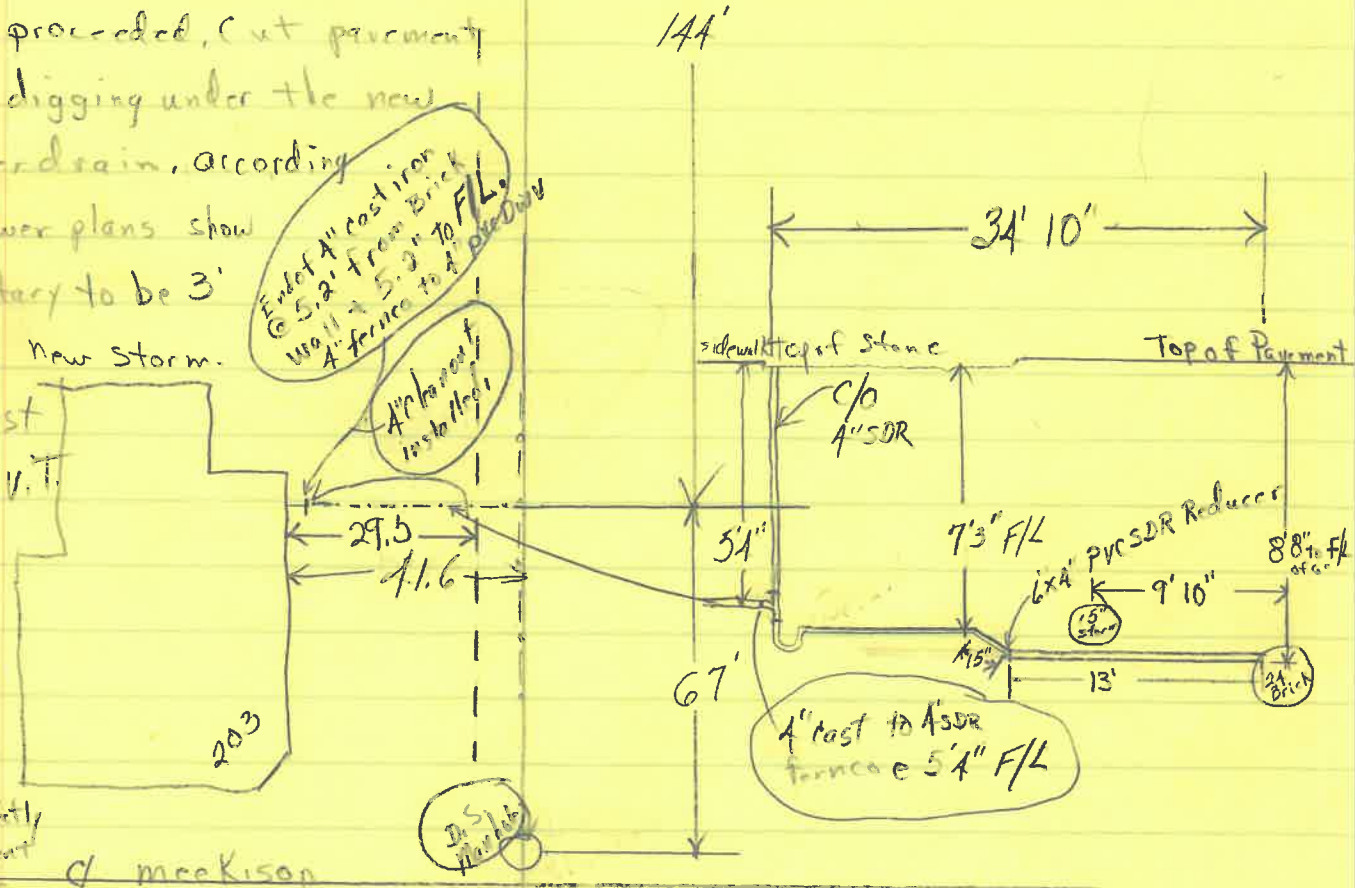 proceeded, Cut pavement
digging under the new
drain, according
wer plans show
tary to be 3'
new storm.
st
V.T.
End of 4" cast iron
@ 5.2' from Brick
Wall & 5.2" to F/L.
4" fernco to 4" pvc DWV
4" cleanout
installed,
29.5
41.6
203
D.S.
Manhole
C/ meekison
144'
67'
34' 10"
sidewalk
Top of Stone
Top of Pavement
C/O
4" SDR
5'4"
7'3" F/L
6x4" pvc SDR Reducer
8'8" to F/L
9' 10"
15"
storm
13'
24
Brick
4" cast to 4" SDR
fernco @ 5'4" F/L